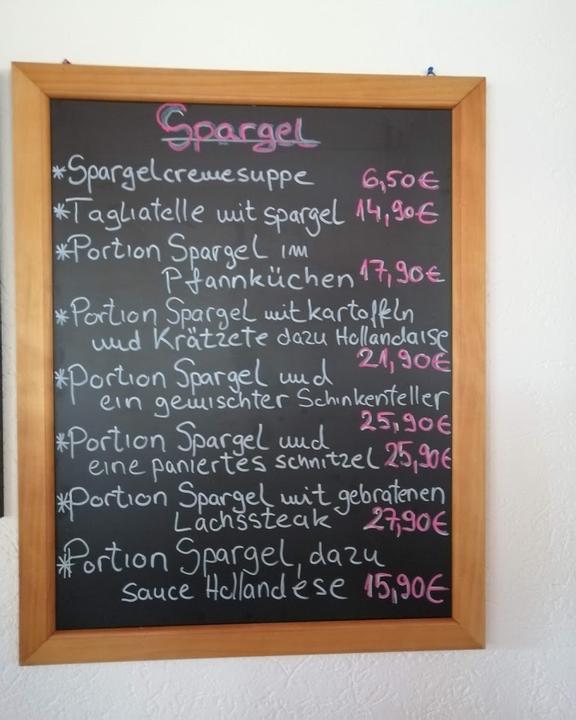 Spargel
*Spargelcremesuppe 6,50€
*Tagliatelle mit spargel 14,90€
*Portion Spargel im
Pfannküchen 17,90€
*Portion Spargel mit kartoffeln
und Krätzete dazu Hollandaise
21,90€
*Portion Spargel und
ein gemischter Schinkenteller
25,90€
*Portion Spargel und
eine paniertes schnitzel 25,90€
*Portion Spargel mit gebratenen
Lachssteak 27,90€
*Portion Spargel, dazu
sauce Hollandese 15,90€